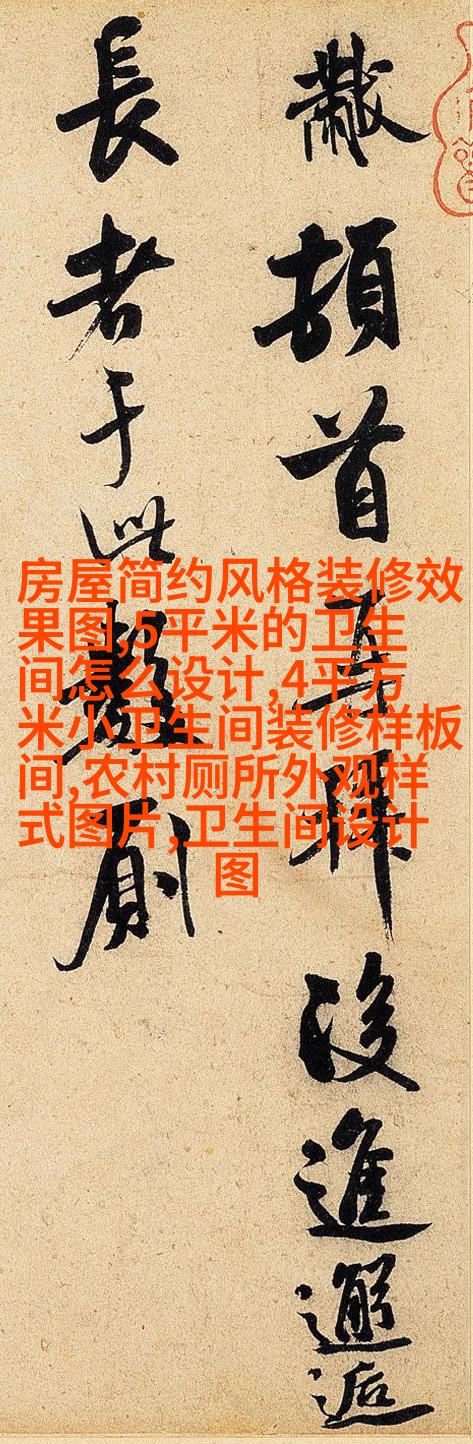 黻頓首再拜後進邂逅
長者于此數厠
房屋简约风格装修效
果图,5平米的卫生
间怎么设计,4平方
米小卫生间装修样板
间,农村厕所外观样
式图片,卫生间设计
图